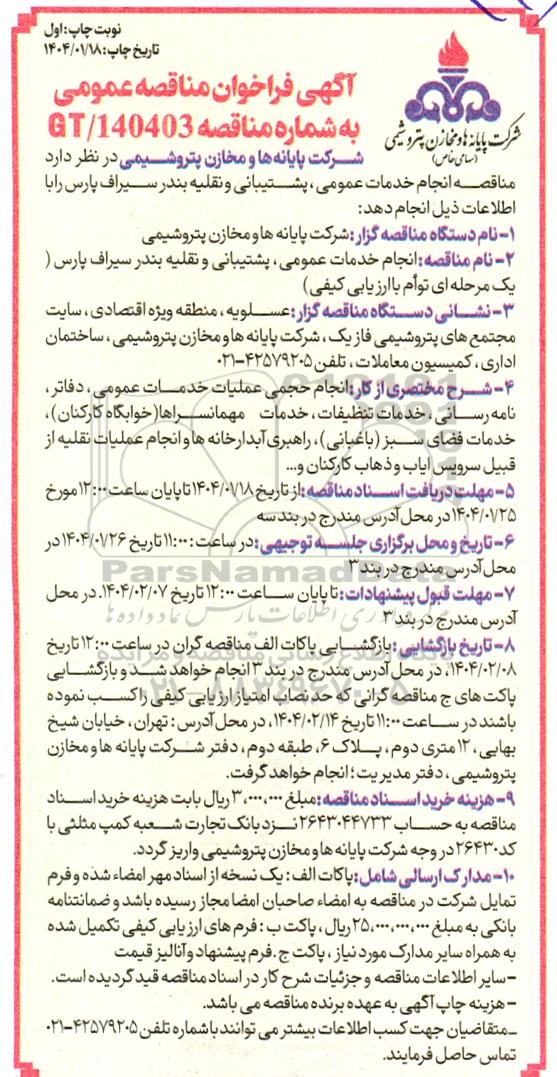 نوبت چاپ: اول
تاریخ چاپ: ۱۴۰۴/۰۱/۱۸
شرکت پایانه ها و مخازن پتروشیمی
(سهامی خاص)
آگهی فراخوان مناقصه عمومی
به شماره مناقصه GT/140403
شرکت پایانه ها و مخازن پتروشیمی در نظر دارد
مناقصه انجام خدمات عمومی، پشتیبانی و نقلیه بندر سیراف پارس را با
اطلاعات ذیل انجام دهد:
۱- نام دستگاه مناقصه گزار: شرکت پایانه ها و مخازن پتروشیمی
۲- نام مناقصه: انجام خدمات عمومی، پشتیبانی و نقلیه بندر سیراف پارس (
یک مرحله ای توأم با ارزیابی کیفی)
۳- نشانی دستگاه مناقصه گزار: عسلویه، منطقه ویژه اقتصادی، سایت
مجتمع های پتروشیمی فاز یک، شرکت پایانه ها و مخازن پتروشیمی، ساختمان
اداری، کمیسیون معاملات، تلفن ۴۲۵۷۹۲۰۵-۰۲۱
۴- شرح مختصری از کار: انجام حجمی عملیات خدمات عمومی، دفاتر،
نامه رسانی، خدمات تنظیفات، خدمات مهمانسراها (خوابگاه کارکنان)،
خدمات فضای سبز (باغبانی)، راهبری آبدارخانه ها و انجام عملیات نقلیه از
قبیل سرویس ایاب و ذهاب کارکنان و...
۵- مهلت دریافت اسناد مناقصه: از تاریخ ۱۴۰۴/۰۱/۱۸ تا پایان ساعت ۱۲:۰۰ مورخ
۱۴۰۴/۰۱/۲۵ در محل آدرس مندرج در بند سه
۶- تاریخ و محل برگزاری جلسه توجیهی: در ساعت: ۱۱:۰۰ تاریخ ۱۴۰۴/۰۱/۲۶ در
محل آدرس مندرج در بند ۳
۷- مهلت قبول پیشنهادات: تا پایان ساعت ۱۲:۰۰ تاریخ ۱۴۰۴/۰۲/۰۷. در محل
آدرس مندرج در بند ۳
۸- تاریخ بازگشایی: بازگشایی پاکات الف مناقصه گران در ساعت ۱۲:۰۰ تاریخ
۱۴۰۴/۰۲/۰۸، در محل آدرس مندرج در بند ۳ انجام خواهد شد و بازگشایی
پاکت های ج مناقصه گرانی که حد نصاب امتیاز ارزیابی کیفی را کسب نموده
باشند در ساعت ۱۱:۰۰ تاریخ ۱۴۰۴/۰۲/۱۴، در محل آدرس: تهران، خیابان شیخ
بهایی، ۱۲ متری دوم، پلاک ۶، طبقه دوم، دفتر شرکت پایانه ها و مخازن
پتروشیمی، دفتر مدیریت؛ انجام خواهد گرفت.
۹- هزینه خرید اسناد مناقصه: مبلغ ۳,۰۰۰,۰۰۰ ریال بابت هزینه خرید اسناد
مناقصه به حساب ۲۶۴۳۰۴۴۷۳۳ نزد بانک تجارت شعبه کمپ مثلثی با
کد ۲۶۴۳۰ در وجه شرکت پایانه ها و مخازن پتروشیمی واریز گردد.
۱۰- مدارک ارسالی شامل: پاکات الف: یک نسخه از اسناد مهر امضاء شده و فرم
تمایل شرکت در مناقصه به امضاء صاحبان امضا مجاز رسیده باشد و ضمانتنامه
بانکی به مبلغ ۲۵,۰۰۰,۰۰۰,۰۰۰ ریال، پاکت ب: فرم های ارزیابی کیفی تکمیل شده
به همراه سایر مدارک مورد نیاز، پاکت ج. فرم پیشنهاد و آنالیز قیمت
- سایر اطلاعات مناقصه و جزئیات شرح کار در اسناد مناقصه قید گردیده است.
- هزینه چاپ آگهی به عهده برنده مناقصه می باشد.
- متقاضیان جهت کسب اطلاعات بیشتر می توانند با شماره تلفن ۴۲۵۷۹۲۰۵-۰۲۱
تماس حاصل فرمایند.
ParsNamadData